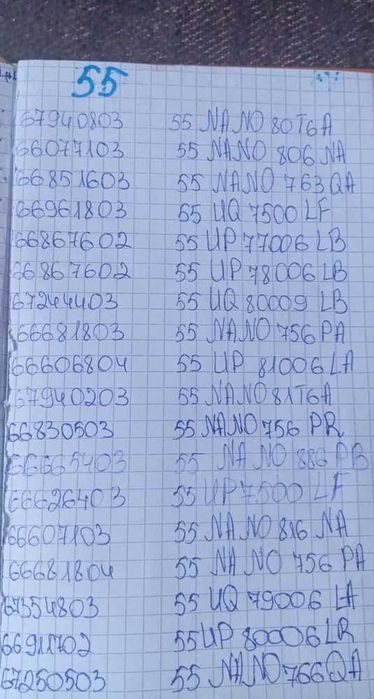 55
67940803 55 NANO 80T6A
66077103 55 NANO 806 NA
66851603 55 NANO 763 QA
66961803 55 UQ 7500 LF
66867602 55 UP 77006 LB
66867602 55 UP 78006 LB
67244403 55 UQ 80009 LB
66681803 55 NANO 756 PA
66606804 55 UP 81006 LA
67940203 55 NANO 81T6A
66830503 55 NANO 756 PR
66665403 55 NANO 886 PB
66626403 55 UP 7500 LF
66607103 55 NANO 816 NA
66681804 55 NANO 756 PA
67354803 55 UQ 79006 LA
66911702 55 UP 80006 LR
67250503 55 NANO 766 QA